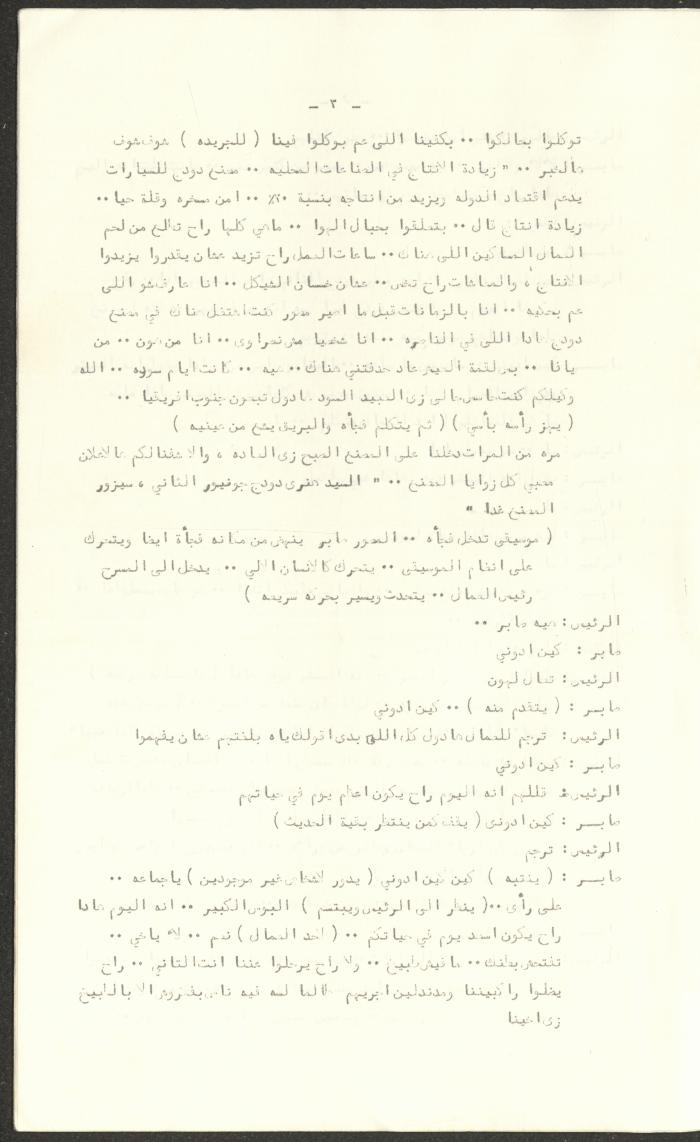 - ٣ -
توكلوا بحالكوا ٠٠ بكفينا اللي عم بوكلوا فينا ( للجريده ) شوف شوف
هالخبر ٠٠ " زيادة الانتاج في الصناعات المحليه ٠٠ مصنع دودج للسيارات
يدعم اقتصاد الدوله ويزيد من انتاجه بنسبة ٢٠٪ ٠٠ امن مسخره وقلة حيا ٠٠
زيادة انتاج قال ٠٠ بتعلقوا بحبال الهوا ٠٠ ماهي كلها راح تطلع من لحم
العمال المساكين اللي هناك ٠٠ ساعات العمل راح تزيد عشان يقدروا يزيدوا
الانتاج ، والمعاشات راح تخص ٠٠ عشان خسان الشيكل ٠٠ انا عارف شو اللي
عم بحكيه ٠٠ انا بالزمانات قبل ما اصير مصور كنت اشتغل هناك في مصنع
دودج هادا اللي في الناصره ٠٠ انا شخصيا مش نصراوى ٠٠ انا من هون ٠٠ من
يافا ٠٠ بس لقمة العيش عاد حدفتني هناك ٠٠ هيه ٠٠ كانت ايام سوده ٠٠ الله
وكيلكم كنت حاسس حالي زى العبيد السود هادول تبعون جنوب افريقيا ٠٠
( يهز رأسه بأسى ) ( ثم يتكلم فجأه والبريق يشع من عينيه )
مره من المرات دخلنا على المصنع الصبح زى العاده ، والا شفنالكم هالاعلان
معبي كل زوايا المصنع ٠٠ " السيد هنرى دودج جونيور الثاني ، سيزور
المصنع غدا "
( موسيقى تدخل فجأه ٠٠ المصور صابر ينهض من مكانه فجأة ايضا ويتحرك
على انغام الموسيقى ٠٠ يتحرك كالانسان الالي ٠٠ يدخل الى المسرح
رئيس العمال ٠٠ يتحدث ويسير بحركه سريعه )
الرئيس : هيه صابر ٠٠
صابر : كين ادوني
الرئيس : تعال لهون
صابر : ( يتقدم منه ) ٠٠ كين ادوني
الرئيس : ترجم للعمال هادول كل اللي بدى اقولك ياه بلغتهم عشان يفهموا
صابر : كين ادوني
الرئيس : قللهم انه اليوم راح يكون اعظم يوم في حياتهم
صابر : كين ادونى ( يقف كمن ينتظر بقية الحديث )
الرئيس : ترجم
صابر : ( ينتبه ) كين كين ادوني ( يدور لاشخاص غير موجودين ) ياجماعه ٠٠
على رأى ٠٠ ( ينظر الى الرئيس ويبتسم ) البوس الكبير ٠٠ انه اليوم هادا
راح يكون اسعد يوم في حياتكم ٠٠ ( لاحد العمال ) نعم ٠٠ لأ ياخي ٠٠
تفتحش بطنك ٠٠ مافيش طبيخ ٠٠ ولا راح يرحلوا عننا انت التاني ٠٠ راح
يظلوا راكبيننا ومدندلين اجريهم طالما لسه فيه ناس بفكروش الا بالطبيخ
زى اخينا